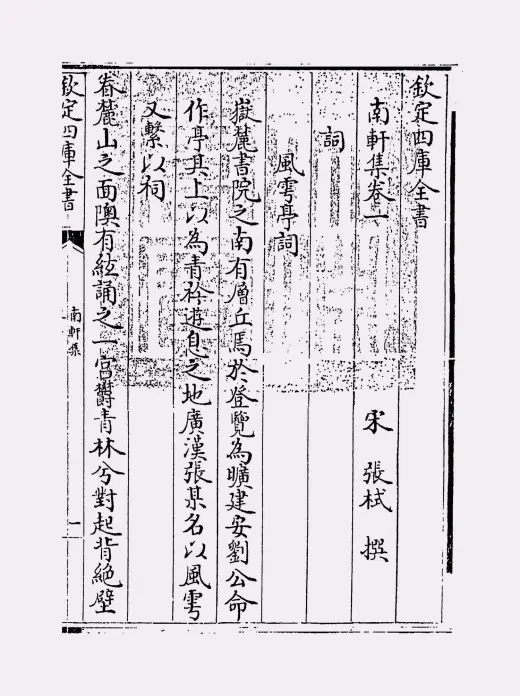 欽定四庫全書
南軒集卷一
宋 張栻 撰
詞
風雩亭詞
嶽麓書院之南有層丘焉於登覽為曠建安劉公命
作亭其上以為青衿遊息之地廣漢張某名以風雩
又繫以祠
眷麓山之面隩有絃誦之一宮鬱青林兮對起背絶壁
欽定四庫全書
南軒集
一